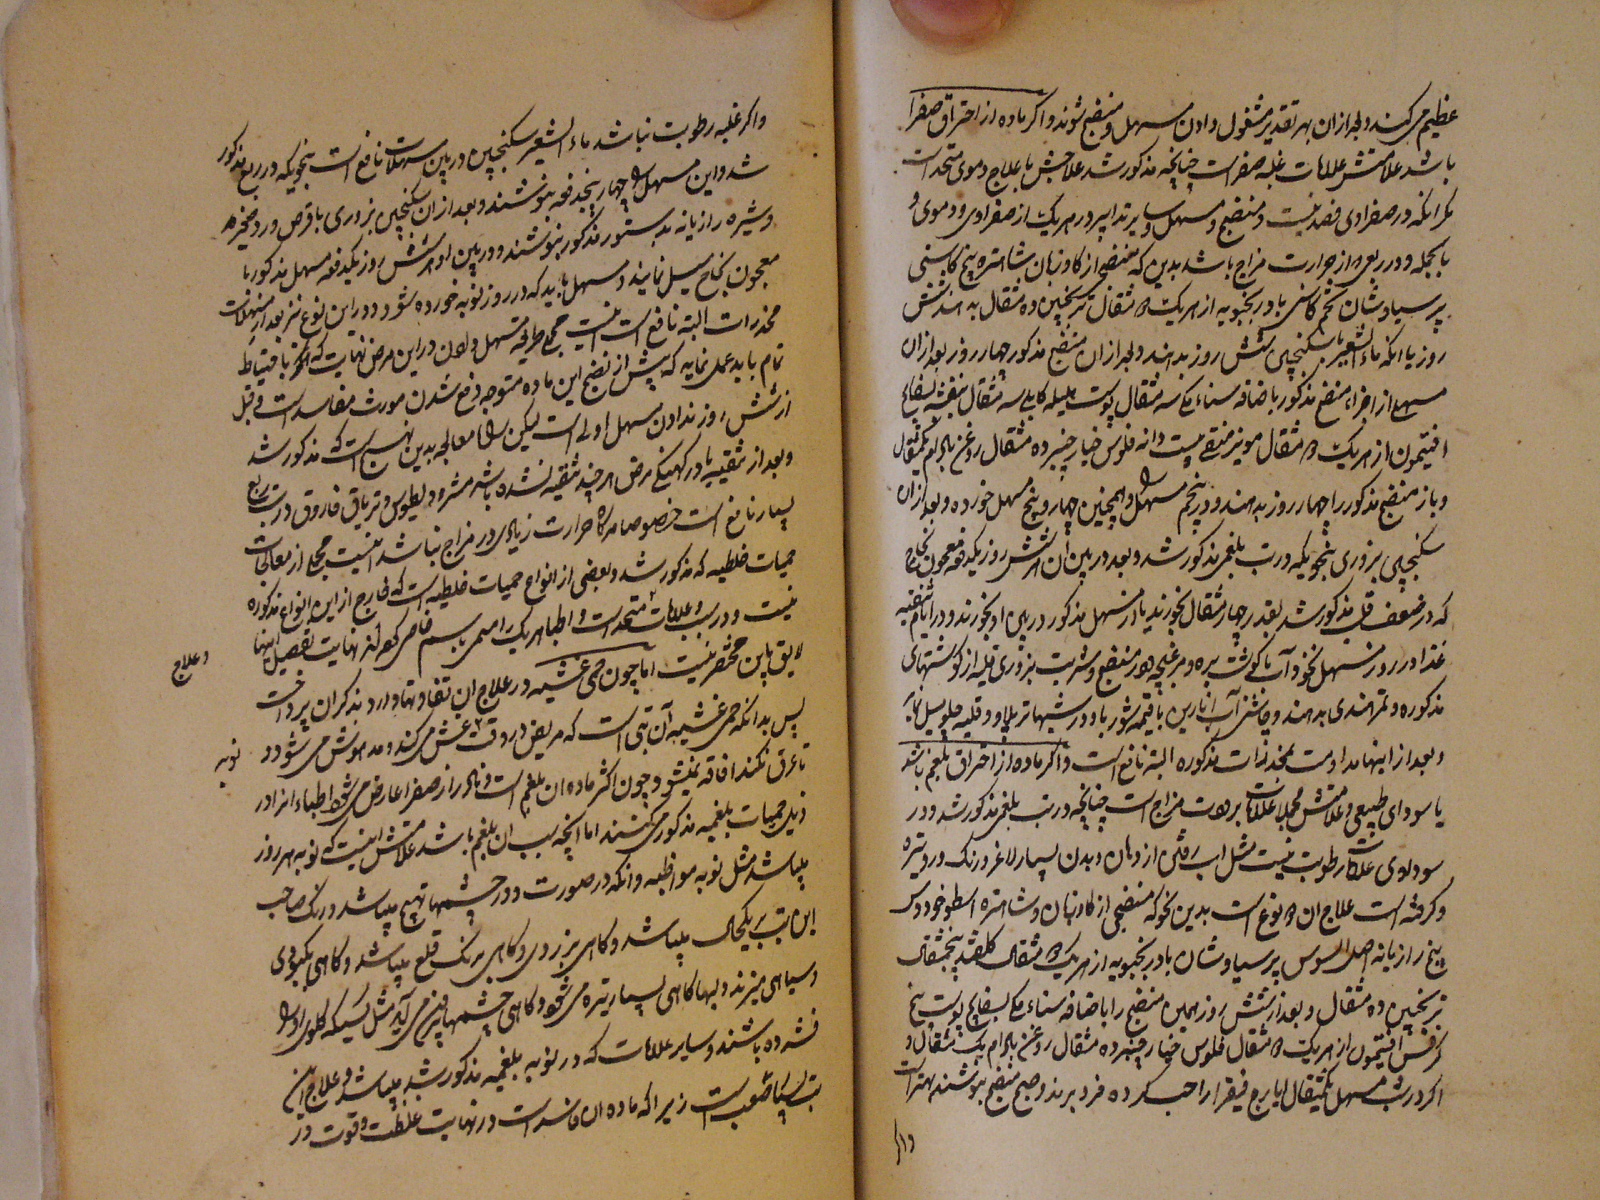 عظیم می کند و بعد ازان بهر تقدیر مشغول دادن مسهل و منضج شوند و اکر ماده از احتراق صفرا
باشد علامتش علامات غلبه صفراست چنانچه مذکور شد علاجش با علاج دموی متحد است
مکر آنکه در صفراوی فصد نیست و منضج و مسهل و سایر تدابیر در هریک از صفراوی و دموی و
بالجمله و در ربعی از حرارت مزاج باشد بدین که منضج از کاوزبان شاهتره بیخ کاسنی
پرسیاوشان تخم کاسنی بادرنجبویه از هریک مثقال ترنجبین ده مثقال بدهند شش
روز یا آنکه ماء الشعیر با سکنجبین شش روز بدهند و بعد ازان منضج مذکور چهار روز بعد ازان
مسهل از اجزاء منضج مذکور باضافه سناء مکی سه مثقال پوست هلیله کابلی سه مثقال بنفشه بسفایج
افتیمون از هریک مثقال مویز منقی بیست دانه فلوس خیار چنبر ده مثقال روغن بادام یکمثقال
و باز منضج مذکور را چهار روز بدهند و در پنجم مسهل و همچنین چهار و پنج مسهل خورده و بعد ازان
سکنجبین بزوری بنحویکه در تب بلغمی مذکور شد و بعد در بین آن هر شش روز یکدفعه معجون نجاح
که در ضعف قلب مذکور شد بقدر چهار مثقال بخورند یا از مسهل مذکور در پی او بخورند و در ایام تنقیه
غذا در روز مسهل نخود آب با کوشت بره و مرغ بچه و در منضج و شربت بزوری قلیه از کوشتهای
مذکوره و تمر هندی بدهند و چاشنی آب انارین با قیمه شوربا و در شبها تر پلاو و قلیه چلو میل نمایند
و بعد از اینها مداومت مخدرات مذکوره البته نافع است و اکر ماده از احتراق بلغم باشد
یا سودای طبیعی و علامتش مجملا علامات برودت مزاج است چنانچه در تب بلغمی مذکور شد و در
سوداوی علامات رطوبت نیست مثل آب رفتن از دهان و بدن بسیار لاغر و رنک و رو تیره
و کرفته است علاج ان نوع است بدین نحو که منضجی از کاوزبان و شاهتره اسطوخودوس
بیخ رازیانه اصل السوس پرسیاوشان بادرنجبویه از هریک مثقال کلقند پنجمثقال
ترنجبین ده مثقال و بعد از شش روز همین منضج را باضافه سناء مکی بسفایج پوست بیخ
کرفس افتیمون از هریک مثقال فلوس خیار چنبر ده مثقال روغن بادام یک مثقال و
اکر در شب مسهل یکمثقال ایارج فیقرا را حب کرده فرو برند و صبح منضج بنوشند بهتر است
واکر
واکر غلبه رطوبت نباشد ماء الشعیر سکنجبین در بین مسهلات نافع است بنحویکه در ربع مذکور
شد و این مسهل چهار پنجدفعه بنوشند و بعد ازان سکنجبین بزوری با قرص ورد صغیر
و شیره رازیانه بدستور مذکور بنوشند و در بین او هر شش روز یکدفعه مسهل مذکور با
معجون نجاح میل نمایند و مسهل باید که در روز نوبه خورده شود و در این نوع نیز بعد از مسهلات
مخدرات البته نافع است اینست مجمل طریقه مسهل و لیکن در این مرض نهایت که باحتیاط
تمام باید عمل نماید که پیش از نضج این ماده متوجه دفع شدن مورث مفاسد است و قبل
از شش روز ندادن مسهل اولی است لیکن معالجه بدین نهج است که مذکور شد
و بعد از تنقیه یا در کهنکی مرض هر چند تنقیه نشده باشد مثرودیطوس و تریاق فاروق در تب ربع
بسیار نافع است خصوصا هرکاه حرارت زیادی در مزاج نباشد اینست مجملی از معالجات
حمیات خلطیه که مذکور شد و بعضی از انواع حمیات خلطیه است که خارج از این انواع مذکوره
نیست و در سبب و علامات متحد است و اطبا هر یک را مسمی باسم خاصی کرده اند نهایت تفصیل اینها
لایق باین مختصر نیست اما چون حمی غشیه در علاج ان تفاوتها دارد بذکر آن پرداخت
و علاج
پس بدانکه حمی غشیه آن تبی است که مریض در وقت غش می کند و مدهوش می شود و
نوبه
تا عرق نکند افاقه نمیشود چون اکثر ماده ان بلغم است و نادر از صفرا عارض می شود اطباء انرا در
ذیل حمیات بلغمیه مذکور می کنند اما آنچه سبب ان بلغم باشد علامتش اینست که نوبه هر روز
میباشد مثل نوبه مواظبه و آنکه در صورت و در چشمها تهبج میباشد و رنک صاحب
این تب بر یکحال میباشد و کاهی بزردی و کاهی برنک قلع میباشد و کاهی بکبودی
و سیاهی میزند و لبها کاهی بسیار تیره می شود و کاهی چشمها بیرون می آید مثل کسیکه کلوی او را
فشرده باشند و سایر علامات که در نوبه بلغمیه مذکور شد میباشد و علاج این
تب بسیار صعب است زیرا که ماده ان فاسد است و در نهایت غلظت و قوت در